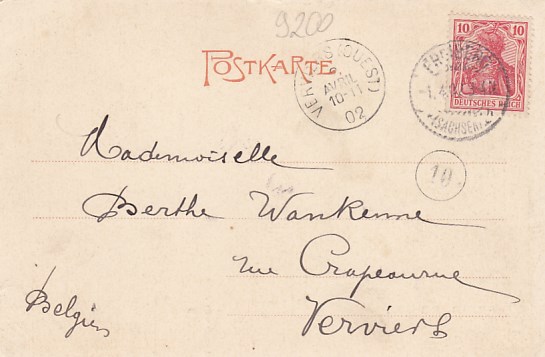 9200
POSTKARTE.
VERVIERS (OUEST)
AVRIL
10-11
02
10 10
DEUTSCHES REICH
(SACHSEN)
Mademoiselle
10
Berthe Wankenne
rue Crapeaurue
Belgien
Verviers